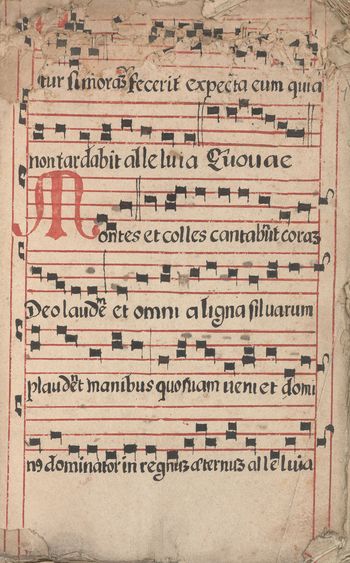 tur si moraȝ fecerit expecta eum quia
non tardabit alleluia Euouae
Montes et colles cantabūt coraȝ
Deo laudē et omni a ligna siluarum
plaudēt manibus quoniam ueni et domi
n9 dominator in regnuȝ æternuȝ alleluia